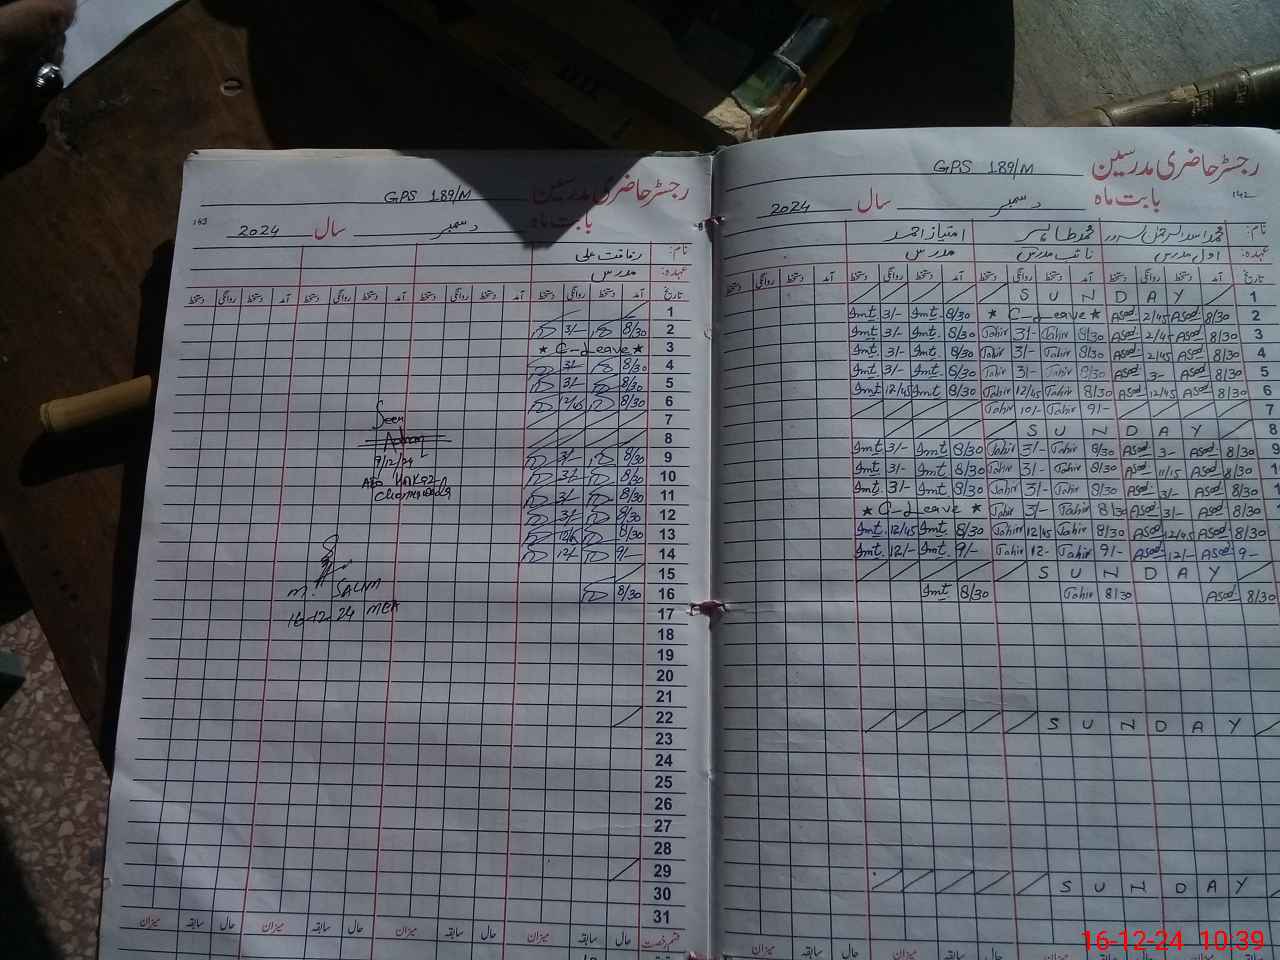 GPS 189/M رجسٹر حاضری مدرسین
163 2024 سال دسمبر بابت ماہ
نام: رفاقت علی
عہدہ: مدرس
تاریخ آمد دستخط روانگی دستخط آمد دستخط روانگی دستخط آمد دستخط روانگی دستخط آمد دستخط روانگی دستخط
1
2 8/30 3/-
3 ★ C-Leave ★
4 8/30 3/-
5 8/30 3/-
6 8/30 12/45
7
8
9 8/30 3/-
10 8/30 3/-
11 8/30 3/-
12 8/30 3/-
13 8/30
14 9/- 12/-
15
16 8/30
17
18
19
20
21
22
23
24
25
26
27
28
29
30
31
Seen
9/12/24
AEO
M. SALIM
16-12-24 MEA
قسم رخصت حال سابقہ میزان حال سابقہ میزان حال سابقہ میزان حال سابقہ میزان
GPS 189/M رجسٹر حاضری مدرسین
142 2024 سال دسمبر بابت ماہ
نام: محمد طاہر امتیاز احمد
عہدہ: اول مدرس نائب مدرس مدرس
تاریخ آمد دستخط روانگی دستخط آمد دستخط روانگی دستخط آمد دستخط روانگی دستخط آمد دستخط روانگی دستخط
S U N D A Y 1
Imt 3/- Imt 8/30 ★ C-Leave ★ Asad 2/45 Asad 8/30 2
Imt 3/- Imt. 8/30 Tahir 3/- Tahir 8/30 Asad 2/45 Asad 8/30 3
Imt 3/- Imt. 8/30 Tahir 3/- Tahir 8/30 Asad 2/45 Asad 8/30 4
Imt 3/- Imt. 8/30 Tahir 3/- Tahir 8/30 Asad 3- Asad 8/30 5
Imt 12/45 Imt 8/30 Tahir 12/45 Tahir 8/30 Asad 12/45 Asad 8/30 6
Tahir Tahir 9/- 7
S U N D A Y 8
Imt 3/- Imt 8/30 Tahir 3/- Tahir 8/30 Asad 3- Asad 8/30 9
Imt 3/- Imt 8/30 Tahir 3/- Tahir 8/30 Asad 11/15 Asad 8/30
Imt 3/- Imt 8/30 Tahir 3/- Tahir 8/30 Asad 3/- Asad 8/30
★ C-Leave ★ Tahir 3/- Tahir 8/30 Asad 3/- Asad 8/30
Imt. 12/45 Imt 8/30 Tahir 12/45 Tahir 8/30 Asad 12/45 Asad 8/30
Imt. 12/- Imt. 9/- Tahir 12- Tahir 9/- Asad 12/- Asad 9-
S U N D A Y
Imt 8/30 Tahir 8/30 Asad 8/30
S U N D A Y
S U N D A Y
16-12-24 10:39